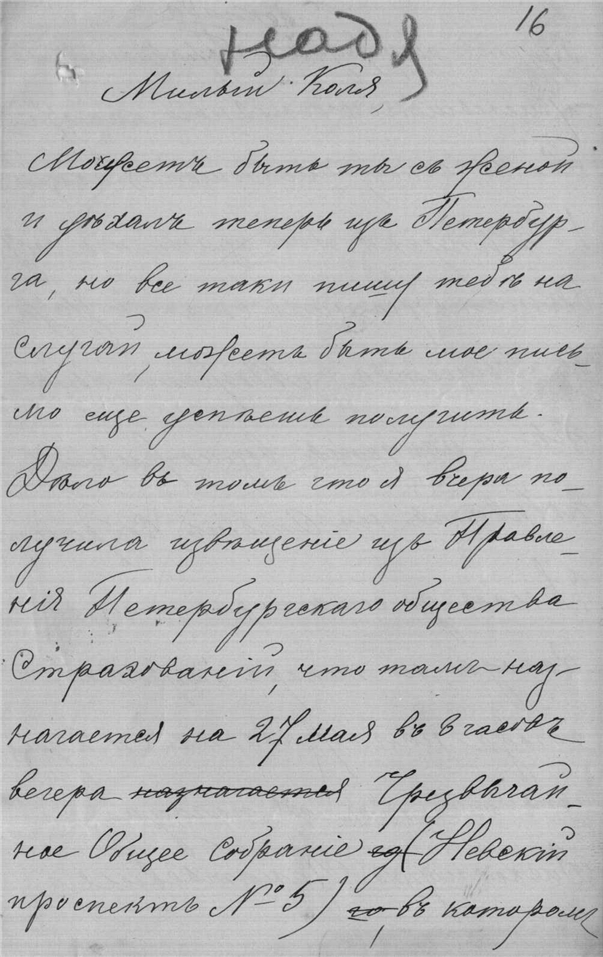 16
Надя
Милый Коля,
Можетъ быть ты съ женой
и уѣхалъ теперь изъ Петербур-
га, но все таки пишу тебѣ на
случай, можетъ быть мое пись-
мо еще успѣешь получить.
Дѣло въ томъ что я вчера по-
лучила извѣщеніе изъ Правле-
нія Петербургскаго общества
Страхованій, что тамъ наз-
начается на 27 мая въ 8 часовъ
вечера назначается Чрезвычай-
ное Общее Собраніе (Невскій
проспектъ № 5), въ которомъ